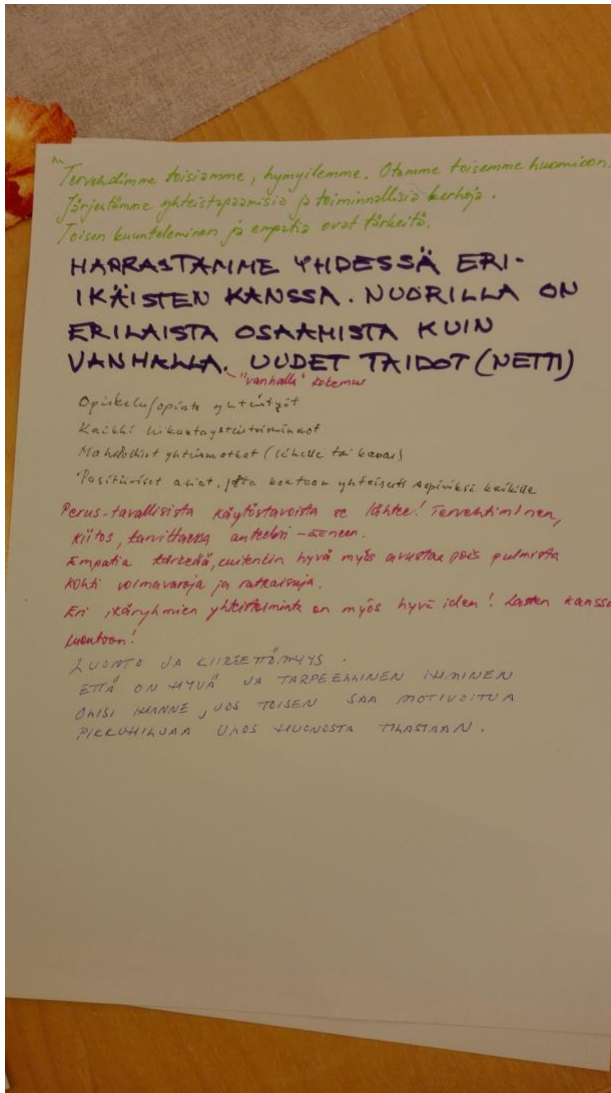 Tervehdimme toisiamme, hymyilemme. Otamme toisemme huomioon.
Järjestämme yhteistapaamisia ja toiminnallisia kerhoja.
Toisen kuunteleminen ja empatia ovat tärkeitä.
HARRASTAMME YHDESSÄ ERI-
IKÄISTEN KANSSA. NUORILLA ON
ERILAISTA OSAAMISTA KUIN
VANHALLA. UUDET TAIDOT (NETTI)
"vanhalla" kokemus
Opiskelu/opinto yhteistyöt
Kaikki liikuntayhteistoiminnot
Mahdolliset yhteismatkat (lähelle tai kauas)
Positiiviset asiat, jotka koetaan yhteisesti sopiviksi kaikille
Perus-tavallisista käytöstavoista se lähtee! Tervehtiminen,
kiitos, tarvittaessa anteeksi-
Empatia tärkeää, kuitenkin hyvä myös avustaa pois pulmista
kohti voimavaroja ja ratkaisuja.
Eri ikäryhmien yhteistoiminta on myös hyvä idea! Lasten kanssa
luontoon!
LUONTO JA KIIREETTÖMYYS.
ETTÄ ON HYVÄ JA TARPEELLINEN IHMINEN
OLISI IHANNE, JOS TOISEN SAA MOTIVOITUA
PIKKUHILJAA ULOS HUONOSTA TILASTAAN.